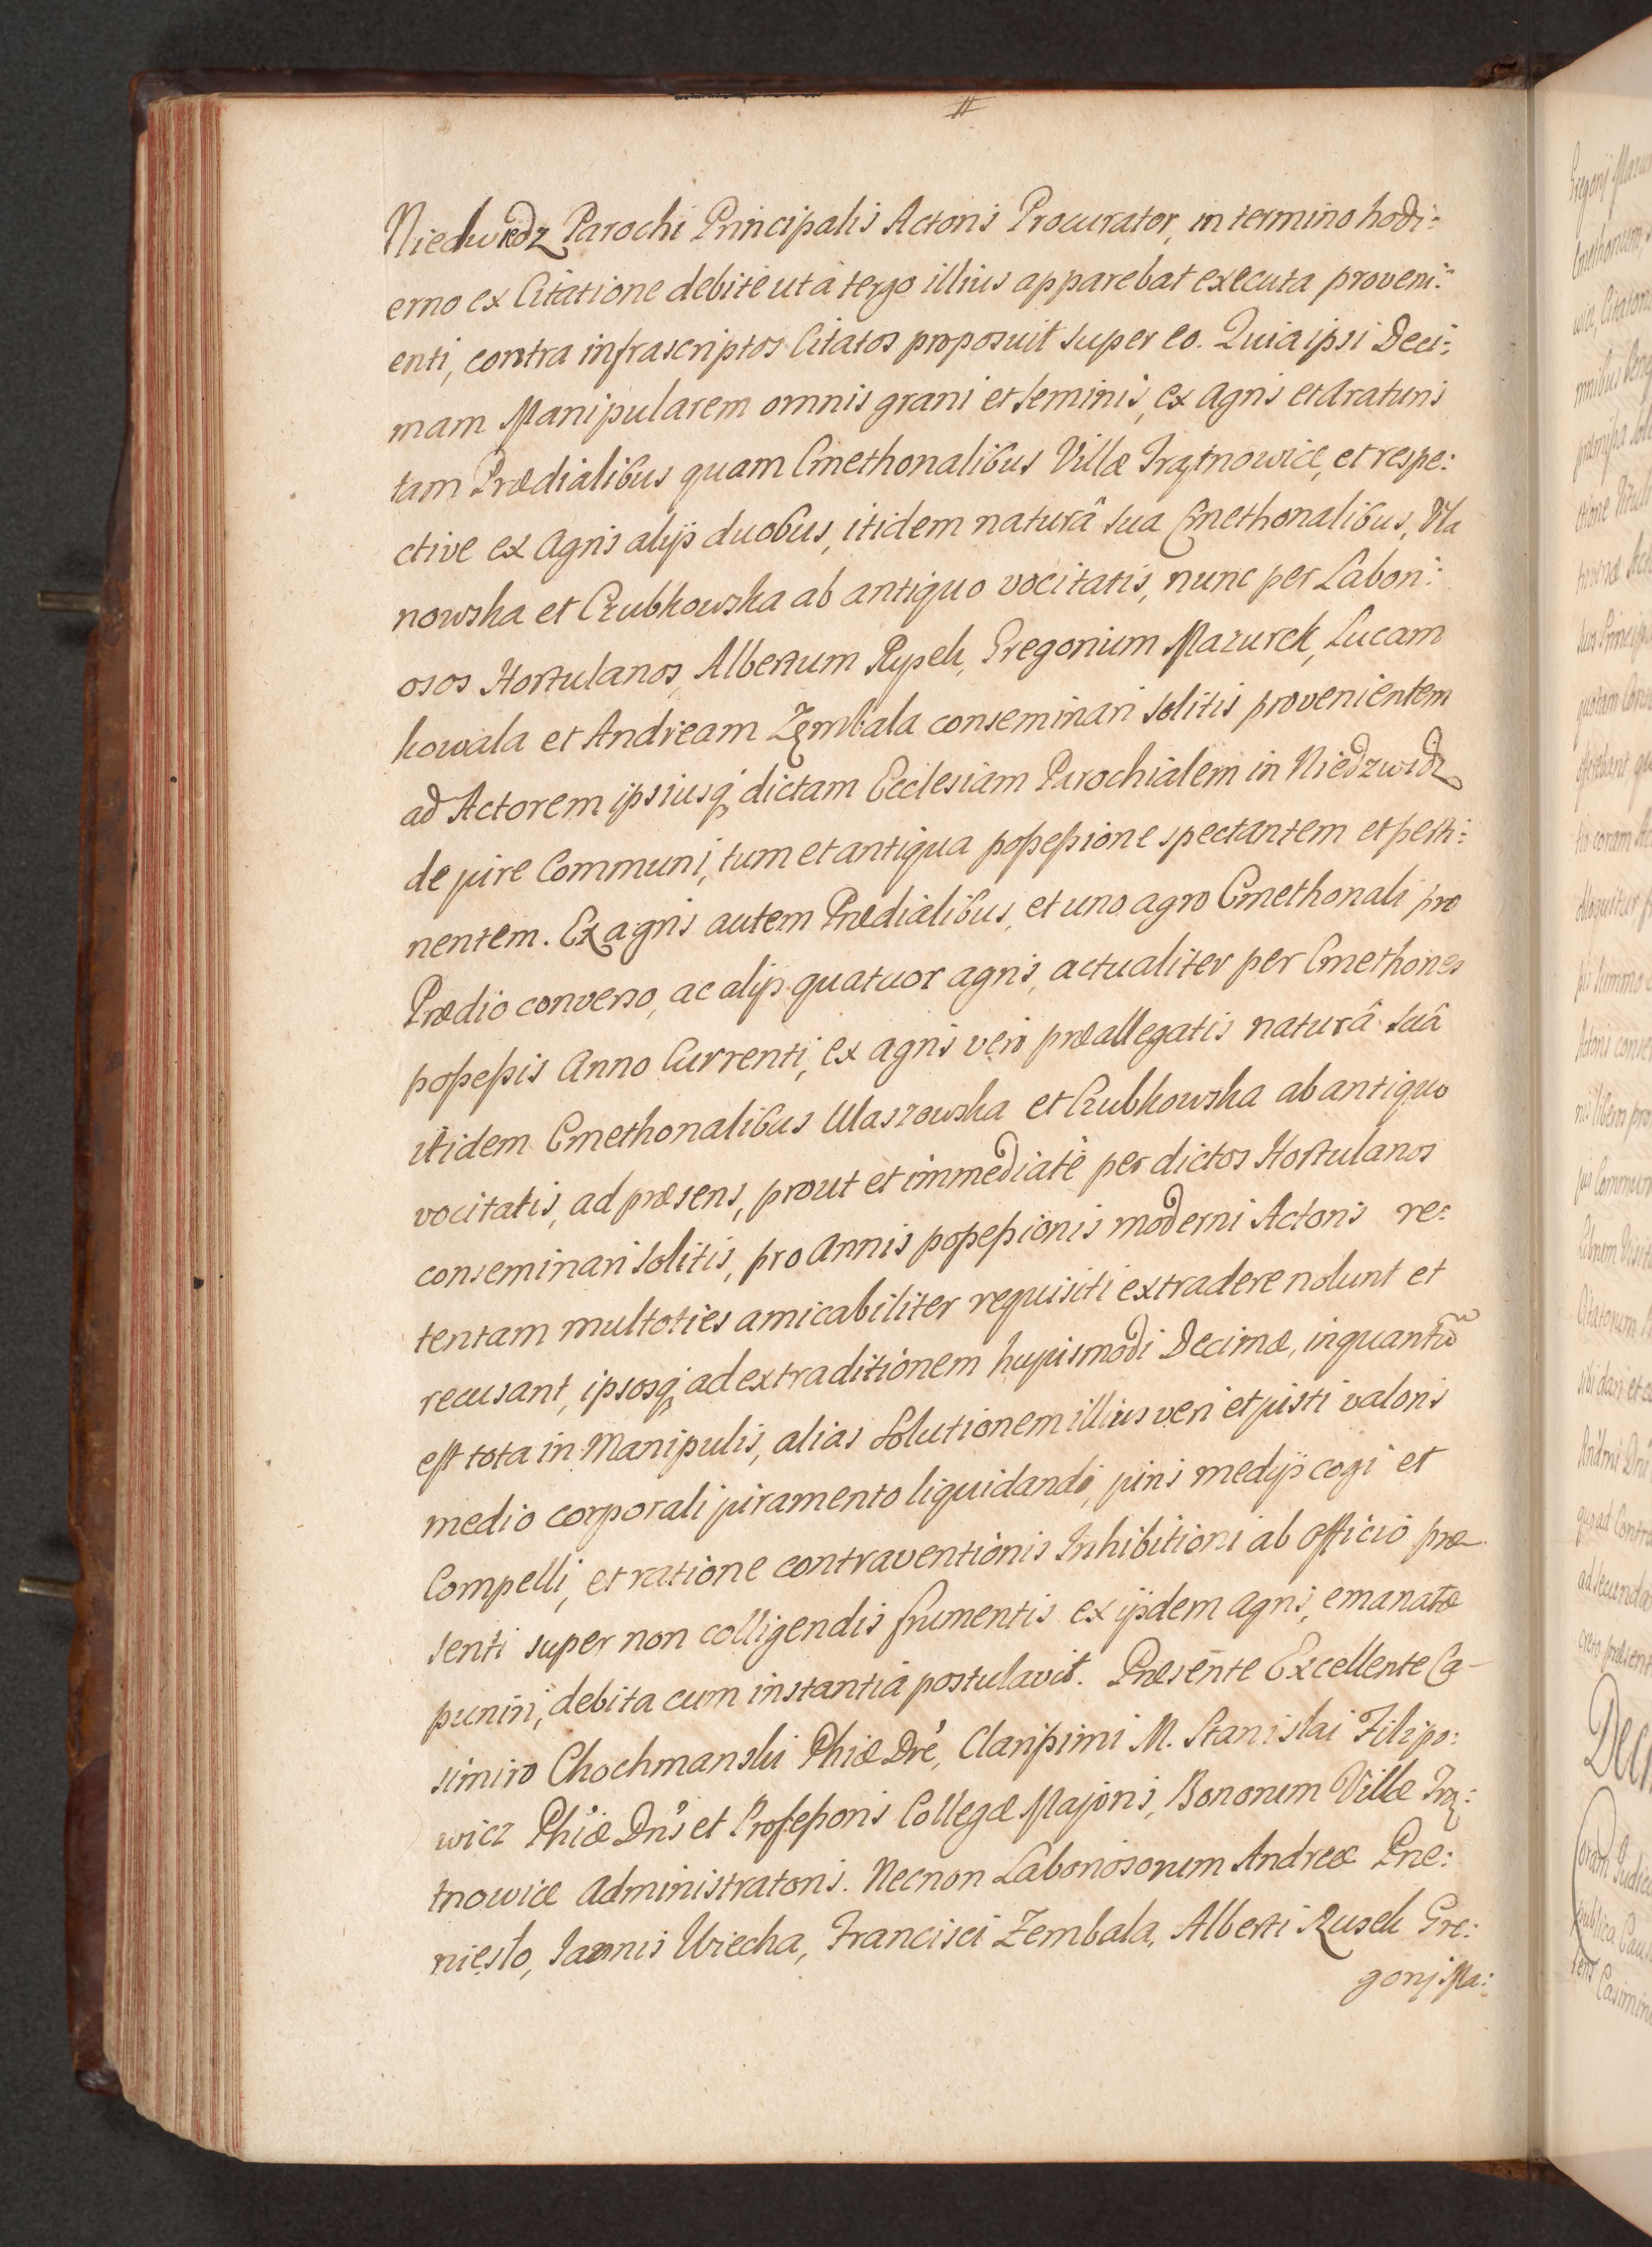 Niedwiedz Parochi Principalis Actoris Procurator, in termino hodi:
erno ex Citatione debitè ut à tergo illius apparebat executa proveni:
enti, contra infrascriptos Citatos proposuit super eo. Quia ipsi Deci:
mam Manipularem omnis grani et seminis, ex agris et araturis
tam Prædialibus quam Cmethonalibus Villæ Trątnowicæ, et respe:
ctive ex Agris alijs duobus, itidem naturâ sua Cmethonalibus,
nowska et Czubkowska ab antiquo vocitatis, nunc per Labori:
osos Hortulanos, Albertum Rypek, Gregorium Mazurek, Lucam
kowala et Andream Zembala conseminari solitis provenientem
ad Actorem ipsiusq; dictam Ecclesiam Parochialem in Niedzwidz
de jure Communi, tum et antiqua possessione spectantem et perti:
nentem. Ex agris autem Prædialibus, et uno agro Cmethonali pro
Prædio converso, ac alijs quatuor agris, actualiter per Cmethones
possessis Anno Currenti, ex agris verò præallegatis naturâ suâ
itidem Cmethonalibus Ulaszowska et Czubkowska ab antiquo
vocitatis, ad præsens, prout et immediatè per dictos Hortulanos
conseminari solitis, pro Annis possessionis moderni Actoris re:
tentam multoties amicabiliter requisiti extradere nolunt et
recusant, ipsosq; ad extraditionem hujusmodi Decimæ, inquantũ
est tota in Manipulis, alias Solutionem illius veri et justi valoris
medio corporali juramento liquidandi, juris medijs cogi et
Compelli, et ratione contraventionis Inhibitioni ab officio præ-
senti super non colligendis frumentis ex ijsdem agris, emanatæ
puniri, debita cum instantiá postulavit. Præsente Excellente Ca-
simiro Chochmanski Phiæ Dre, Clarissimi M. Stanislai Filipo:
wicz Phiæ Dris et Professoris Collegæ Majoris, Bonorum Villæ Trą:
tnowicæ Administratoris. Necnon Laboriosorum Andreæ Prze:
niesło, Joannis Wiecha, Francisci Zembala, Alberti Rusek Gre:
gorij Ma: